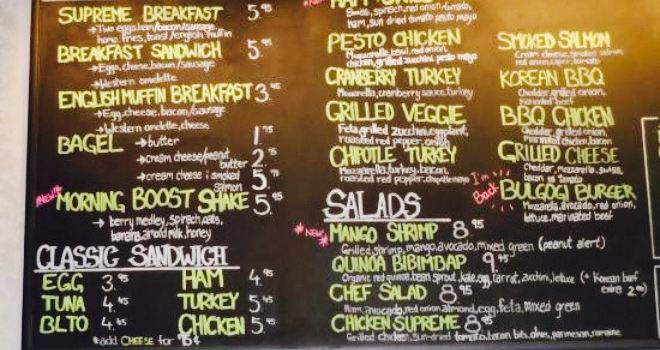 SUPREME BREAKFAST 5.95
→Two eggs, ham/bacon/sausage,
home fries, toast/english muffin
BREAKFAST SANDWICH 5.
→Egg, cheese, bacon/sausage
→Western omelette
ENGLISH MUFFIN BREAKFAST 3.
→Egg, cheese, bacon/sausage
→Western omelette, cheese
BAGEL →butter 1.75
→cream cheese/peanut butter 2.
→cream cheese & smoked salmon 5.
*NEW*
MORNING BOOST SHAKE 5.95
→berry medley, spinach, oats,
banana, almond milk, honey
CLASSIC SANDWICH
EGG 3.95 HAM 4.95
TUNA 4.45 TURKEY 5.45
BLTO 4.45 CHICKEN 5.45
*add CHEESE for 75¢
HAM
spinach, red onion, tomato,
ham, sun dried tomato pesto mayo
PESTO CHICKEN
Mozzarella, red onion,
chicken, grilled zucchini, pesto mayo
CRANBERRY TURKEY
Mozzarella, cranberry sauce, turkey
GRILLED VEGGIE
Feta, grilled zucchini, eggplant,
roasted red pepper, tomato
CHIPOTLE TURKEY
Mozzarella, turkey, bacon,
roasted red pepper, chipotle mayo
SMOKED SALMON
Cream cheese, smoked salmon,
red onion, caper, tomato
KOREAN BBQ
Cheddar, grilled onion,
marinated beef
BBQ CHICKEN
Cheddar, grilled onion,
GRILLED CHEESE
Cheddar, mozzarella, swiss,
bacon or tomato
I'm Back
BULGOGI BURGER
Mozzarella, avocado, red onion,
lettuce, marinated beef
SALADS
*NEW*
MANGO SHRIMP 8.95
Grilled shrimp, mango, avocado, mixed green (peanut alert)
QUINOA BIBIMBAP 9.45
Organic red quinoa, bean sprout, kale, egg, carrot, zucchini, lettuce (* Korean beef
extra 2.00)
CHEF SALAD 8.95
Ham, avocado, red onion, almond, egg, feta, mixed green
CHICKEN SUPREME 8.95
Grilled chicken, sun-dried tomato, bacon bits, olives, parmesan, romaine